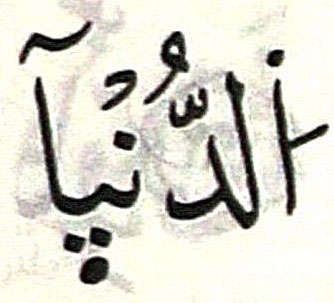 الدُّنْيآ